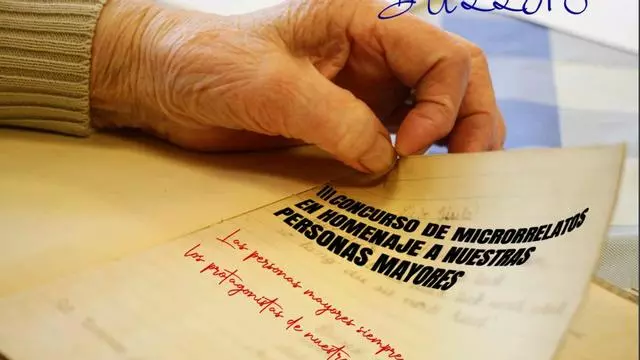 III CONCURSO DE MICRORRELATOS
EN HOMENAJE A NUESTRAS
PERSONAS MAYORES
Las personas mayores siempre
los protagonistas de